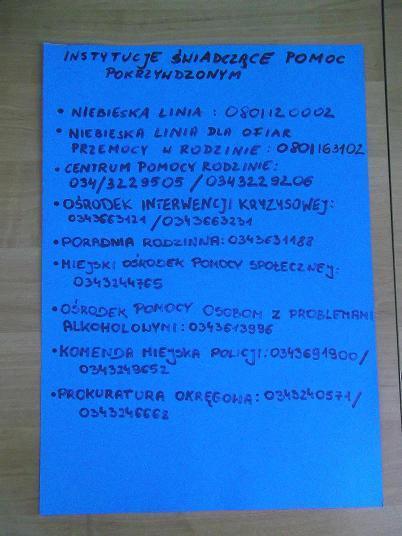 INSTYTUCJE ŚWIADCZĄCE POMOC
POKRZYWDZONYM
• NIEBIESKA LINIA : 0801120002
• NIEBIESKA LINIA DLA OFIAR
PRZEMOCY W RODZINIE: 0801163102
• CENTRUM POMOCY RODZINIE:
034/3229505 / 0343229206
• OŚRODEK INTERWENCJI KRYZYSOWEJ:
0343663121 / 0343663231
• PORADNIA RODZINNA: 0343631188
• MIEJSKI OŚRODEK POMOCY SPOŁECZNEJ:
0343244765
• OŚRODEK POMOCY OSOBOM Z PROBLEMAMI
ALKOHOLOWYMI: 0343613996
• KOMENDA MIEJSKA POLICJI: 0343691900/
0343249652
• PROKURATURA OKRĘGOWA: 0343240571/
0343246668